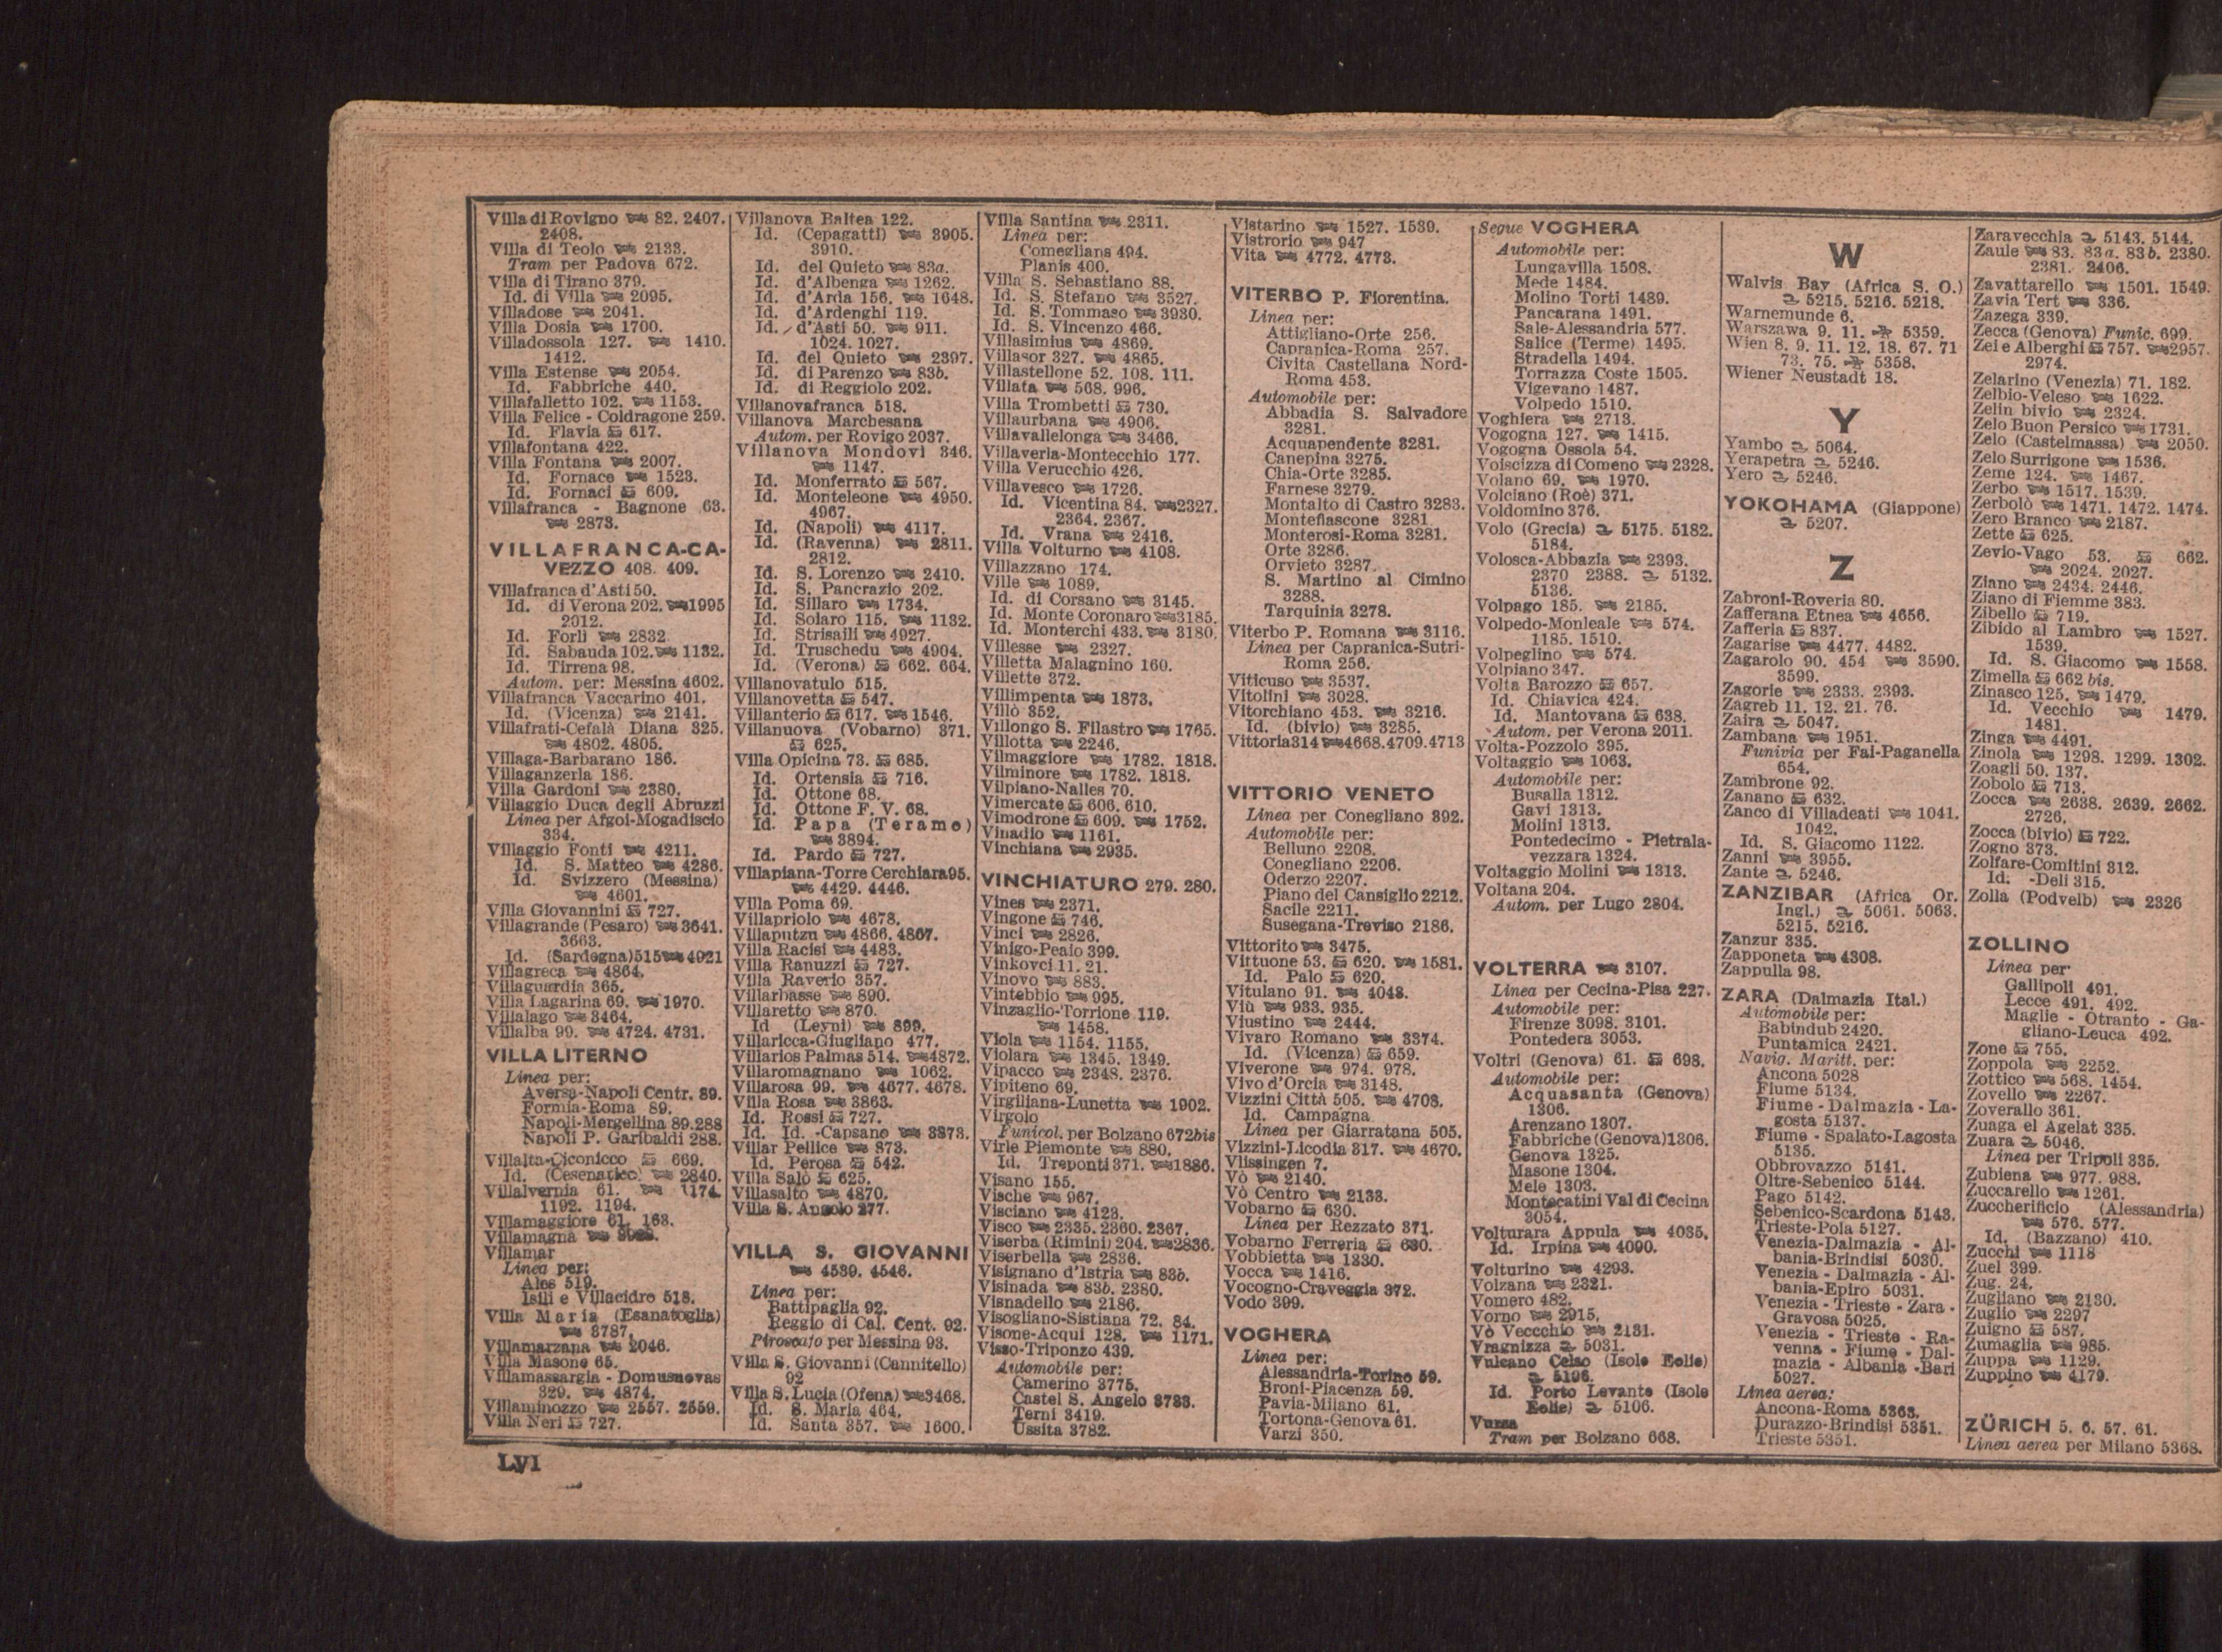 Villa di Rovigno 82. 2407.
2408.
Villa di Teolo 2133.
Tram per Padova 672.
Villa di Tirano 379.
Id. di Villa 2095.
Villadose 2041.
Villa Dosia 1700.
Villadossola 127. 1410.
1412.
Villa Estense 2054.
Id. Fabbriche 440.
Villafalletto 102. 1153.
Villa Felice - Coldragone 259.
Id. Flavia 617.
Villafontana 422.
Villa Fontana 2007.
Id. Fornace 1523.
Id. Fornaci 609.
Villafranca - Bagnone 63.
2873.
VILLAFRANCA-CA-
VEZZO 408. 409.
Villafranca d'Asti 50.
Id. di Verona 202. 1995
2012.
Id. Forlì 2832
Id. Sabauda 102. 1132.
Id. Tirrena 98.
Autom. per: Messina 4602.
Villafranca Vaccarino 401.
Id. (Vicenza) 2141.
Villafrati-Cefalà Diana 325.
4802. 4805.
Villaga-Barbarano 186.
Villaganzerla 186.
Villa Gardoni 2380.
Villaggio Duca degli Abruzzi
Linea per Afgoi-Mogadiscio
334.
Villaggio Fonti 4211.
Id. S. Matteo 4286.
Id. Svizzero (Messina)
4601.
Villa Giovannini 727.
Villagrande (Pesaro) 3641.
3663.
Id. (Sardegna) 515 4921
Villagreca 4864.
Villaguardia 365.
Villa Lagarina 69. 1970.
Villalago 3464.
Villalba 99. 4724. 4731.
VILLA LITERNO
Linea per:
Aversa-Napoli Centr. 89.
Formia-Roma 89.
Napoli-Mergellina 89.288
Napoli P. Garibaldi 288.
Villalta-Ciconicco 669.
Id. (Cesenatico) 2840.
Villalvernia 61. 1174
1192. 1194.
Villamaggiore 61. 163.
Villamagna
Villamar
Linea per:
Ales 519.
Isili e Villacidro 518.
Villa Maria (Esanatoglia)
3787.
Villamarzana 2046.
Villa Masone 65.
Villamassargia - Domusnovas
329. 4874.
Villaminozzo 2557. 2559.
Villa Neri 727.
Villanova Baltea 122.
Id. (Cepagatti) 3905.
3910.
Id. del Quieto 83a.
Id. d'Albenga 1262.
Id. d'Arda 156. 1648.
Id. d'Ardenghi 119.
Id. d'Asti 50. 911.
1024. 1027.
Id. del Quieto 2397.
Id. di Parenzo 83b.
Id. di Reggiolo 202.
Villanovafranca 518.
Villanova Marchesana
Autom. per Rovigo 2037.
Villanova Mondovì 346.
1147.
Id. Monferrato 567.
Id. Monteleone 4950.
4967.
Id. (Napoli) 4117.
Id. (Ravenna) 2811.
2812.
Id. S. Lorenzo 2410.
Id. S. Pancrazio 202.
Id. Sillaro 1734.
Id. Solaro 115. 1132.
Id. Strisaili 4927.
Id. Truschedu 4904.
Id. (Verona) 662. 664.
Villanovatulo 515.
Villanovetta 547.
Villanterio 617. 1546.
Villanuova (Vobarno) 371.
625.
Villa Opicina 73. 685.
Id. Ortensia 716.
Id. Ottone 68.
Id. Ottone F. V. 68.
Id. Papa (Teramo)
3894.
Id. Pardo 727.
Villapiana-Torre Cerchiara 95.
4429. 4446.
Villa Poma 69.
Villapriolo 4678.
Villaputzu 4866. 4867.
Villa Racisi 4483.
Villa Ranuzzi 727.
Villa Raverio 357.
Villarbasse 890.
Villaretto 870.
Id (Leyni) 899.
Villaricca-Giugliano 477.
Villarios Palmas 514. 4872.
Villaromagnano 1062.
Villarosa 99. 4677. 4678.
Villa Rosa 3863.
Id. Rossi 727.
Id. Id. -Capsano 3873.
Villar Pellice 873.
Id. Perosa 542.
Villa Salò 625.
Villasalto 4870.
Villa S. Angelo 277.
VILLA S. GIOVANNI
4539. 4546.
Linea per:
Battipaglia 92.
Reggio di Cal. Cent. 92.
Piroscafo per Messina 93.
Villa S. Giovanni (Cannitello)
92
Villa S. Lucia (Ofena) 3468.
Id. S. Maria 464.
Id. Santa 357. 1600.
Villa Santina 2311.
Linea per:
Comeglians 494.
Planis 400.
Villa S. Sebastiano 88.
Id. S. Stefano 3527.
Id. S. Tommaso 3930.
Id. S. Vincenzo 466.
Villasimius 4869.
Villasor 327. 4865.
Villastellone 52. 108. 111.
Villata 568. 996.
Villa Trombetti 730.
Villaurbana 4906.
Villavallelonga 3466.
Villaveria-Montecchio 177.
Villa Verucchio 426.
Villavesco 1726.
Id. Vicentina 84. 2327.
2364. 2367.
Id. Vrana 2416.
Villa Volturno 4108.
Villazzano 174.
Ville 1089.
Id. di Corsano 3145.
Id. Monte Coronaro 3185.
Id. Monterchi 433. 3180.
Villesse 2327.
Villetta Malagnino 160.
Villette 372.
Villimpenta 1873.
Villò 352.
Villongo S. Filastro 1765.
Villotta 2246.
Vilmaggiore 1782. 1818.
Vilminore 1782. 1818.
Vilpiano-Nalles 70.
Vimercate 606. 610.
Vimodrone 609. 1752.
Vinadio 1161.
Vinchiana 2935.
VINCHIATURO 279. 280.
Vines 2371.
Vingone 746.
Vinci 2826.
Vinigo-Peaio 399.
Vinkovci 11. 21.
Vinovo 883.
Vintebbio 995.
Vinzaglio-Torrione 119.
1458.
Viola 1154. 1155.
Violara 1345. 1349.
Vipacco 2348. 2376.
Vipiteno 69.
Virgiliana-Lunetta 1902.
Virgolo
Funicol. per Bolzano 672bis
Virle Piemonte 880.
Id. Treponti 371. 1886.
Visano 155.
Vische 967.
Visciano 4123.
Visco 2335. 2360. 2367.
Viserba (Rimini) 204. 2836.
Viserbella 2836.
Visignano d'Istria 83b.
Visinada 83b. 2380.
Visnadello 2186.
Visogliano-Sistiana 72. 84.
Visone-Acqui 128. 1171.
Visso-Triponzo 439.
Automobile per:
Camerino 3775.
Castel S. Angelo 3783.
Terni 3419.
Ussita 3782.
Vistarino 1527. 1539.
Vistrorio 947
Vita 4772. 4773.
VITERBO P. Fiorentina.
Linea per:
Attigliano-Orte 256.
Capranica-Roma 257.
Civita Castellana Nord-
Roma 453.
Automobile per:
Abbadia S. Salvadore
3281.
Acquapendente 3281.
Canepina 3275.
Chia-Orte 3285.
Farnese 3279.
Montalto di Castro 3283.
Montefiascone 3281
Monterosi-Roma 3281.
Orte 3286.
Orvieto 3287.
S. Martino al Cimino
3288.
Tarquinia 3278.
Viterbo P. Romana 3116.
Linea per Capranica-Sutri-
Roma 256.
Viticuso 3537.
Vitolini 3028.
Vitorchiano 453. 3216.
Id. (bivio) 3285.
Vittoria 314 4668.4709.4713
VITTORIO VENETO
Linea per Conegliano 392.
Automobile per:
Belluno 2208.
Conegliano 2206.
Oderzo 2207.
Piano del Cansiglio 2212.
Sacile 2211.
Susegana-Treviso 2186.
Vittorito 3475.
Vittuone 53. 620. 1581.
Id. Palo 620.
Vitulano 91. 4048.
Viù 933. 935.
Viustino 2444.
Vivaro Romano 3374.
Id. (Vicenza) 659.
Viverone 974. 978.
Vivo d'Orcia 3148.
Vizzini Città 505. 4708.
Id. Campagna
Linea per Giarratana 505.
Vizzini-Licodia 317. 4670.
Vlissingen 7.
Vò 2140.
Vò Centro 2133.
Vobarno 630.
Linea per Rezzato 371.
Vobarno Ferreria 630.
Vobbietta 1330.
Vocca 1416.
Vocogno-Craveggia 372.
Vodo 399.
VOGHERA
Linea per:
Alessandria-Torino 59.
Broni-Piacenza 59.
Pavia-Milano 61.
Tortona-Genova 61.
Varzi 350.
Segue VOGHERA
Automobile per:
Lungavilla 1508.
Mede 1484.
Molino Torti 1489.
Pancarana 1491.
Sale-Alessandria 577.
Salice (Terme) 1495.
Stradella 1494.
Torrazza Coste 1505.
Vigevano 1487.
Volpedo 1510.
Voghiera 2713.
Vogogna 127. 1415.
Vogogna Ossola 54.
Voiscizza di Comeno 2328.
Volano 69. 1970.
Volciano (Roè) 371.
Voldomino 376.
Volo (Grecia) 5175. 5182.
5184.
Volosca-Abbazia 2393.
2370 2388. 5132.
5136.
Volpago 185. 2185.
Volpedo-Monleale 574.
1185. 1510.
Volpeglino 574.
Volpiano 347.
Volta Barozzo 657.
Id. Chiavica 424.
Id. Mantovana 638.
Autom. per Verona 2011.
Volta-Pozzolo 395.
Voltaggio 1063.
Automobile per:
Busalla 1312.
Gavi 1313.
Molini 1313.
Pontedecimo - Pietrala-
vezzara 1324.
Voltaggio Molini 1313.
Voltana 204.
Autom. per Lugo 2804.
VOLTERRA 3107.
Linea per Cecina-Pisa 227.
Automobile per:
Firenze 3098. 3101.
Pontedera 3053.
Voltri (Genova) 61. 698.
Automobile per:
Acquasanta (Genova)
1306.
Arenzano 1307.
Fabbriche (Genova)1306.
Genova 1325.
Masone 1304.
Mele 1303.
Montecatini Val di Cecina
3054.
Volturara Appula 4035.
Id. Irpina 4090.
Volturino 4293.
Volzana 2321.
Vomero 482.
Vorno 2915.
Vò Veccchio 2131.
Vragnizza 5031.
Vulcano Celso (Isole Eolie)
5106.
Id. Porto Levante (Isole
Eolie) 5106.
Tram per Bolzano 668.
W
Walvis Bay (Africa S. O.)
5215. 5216. 5218.
Warnemunde 6.
Warszawa 9. 11. 5359.
Wien 8. 9. 11. 12. 18. 67. 71
73. 75. 5358.
Wiener Neustadt 18.
Y
Yambo 5064.
Yerapetra 5246.
Yero 5246.
YOKOHAMA (Giappone)
5207.
Z
Zabroni-Roveria 80.
Zafferana Etnea 4656.
Zafferia 837.
Zagarise 4477. 4482.
Zagarolo 90. 454 3590.
3599.
Zagorie 2333. 2393.
Zagreb 11. 12. 21. 76.
Zaira 5047.
Zambana 1951.
Funivia per Fai-Paganella
654.
Zambrone 92.
Zanano 632.
Zanco di Villadeati 1041.
1042.
Id. S. Giacomo 1122.
Zanni 3955.
Zante 5246.
ZANZIBAR (Africa Or.
Ingl.) 5061. 5063.
5215. 5216.
Zanzur 335.
Zapponeta 4308.
Zappulla 98.
ZARA (Dalmazia Ital.)
Automobile per:
Babindub 2420.
Puntamica 2421.
Navig. Maritt. per:
Ancona 5028
Fiume 5134.
Fiume - Dalmazia - La-
gosta 5137.
Fiume - Spalato-Lagosta
5135.
Obbrovazzo 5141.
Oltre-Sebenico 5144.
Pago 5142.
Sebenico-Scardona 5143.
Trieste-Pola 5127.
Venezia-Dalmazia - Al-
bania-Brindisi 5030.
Venezia - Dalmazia - Al-
bania-Epiro 5031.
Venezia - Trieste - Zara -
Gravosa 5025.
Venezia - Trieste - Ra-
venna - Fiume - Dal-
mazia - Albania -Bari
5027.
Linea aerea:
Ancona-Roma 5363.
Durazzo-Brindisi 5351.
Trieste 5351.
Zaravecchia 5143. 5144.
Zaule 83. 83a. 83b. 2380.
2381. 2406.
Zavattarello 1501. 1549.
Zavia Tert 336.
Zazega 339.
Zecca (Genova) Funic. 699.
Zei e Alberghi 757. 2957.
2974.
Zelarino (Venezia) 71. 182.
Zelbio-Veleso 1622.
Zelin bivio 2324.
Zelo Buon Persico 1731.
Zelo (Castelmassa) 2050.
Zelo Surrigone 1536.
Zeme 124. 1467.
Zerbo 1517. 1539.
Zerbolò 1471. 1472. 1474.
Zero Branco 2187.
Zette 625.
Zevio-Vago 53. 662.
2024. 2027.
Ziano 2434. 2446.
Ziano di Fiemme 383.
Zibello 719.
Zibido al Lambro 1527.
1539.
Id. S. Giacomo 1558.
Zimella 662 bis.
Zinasco 125. 1479.
Id. Vecchio 1479.
1481.
Zinga 4491.
Zinola 1298. 1299. 1302.
Zoagli 50. 137.
Zobolo 713.
Zocca 2638. 2639. 2662.
2726.
Zocca (bivio) 722.
Zogno 373.
Zolfare-Comitini 312.
Id. -Deli 315.
Zolla (Podvelb) 2326
ZOLLINO
Linea per
Gallipoli 491.
Lecce 491. 492.
Maglie - Otranto - Ga-
gliano-Leuca 492.
Zone 755.
Zoppola 2252.
Zottico 568. 1454.
Zovello 2267.
Zoverallo 361.
Zuaga el Agelat 335.
Zuara 5046.
Linea per Tripoli 335.
Zubiena 977. 988.
Zuccarello 1261.
Zuccherificio (Alessandria)
576. 577.
Id. (Bazzano) 410.
Zucchi 1118
Zuel 399.
Zug. 24.
Zugliano 2130.
Zuglio 2297
Zuigno 587.
Zumaglia 985.
Zuppa 1129.
Zuppino 4179.
ZÜRICH 5. 6. 57. 61.
Linea aerea per Milano 5368.
LVI